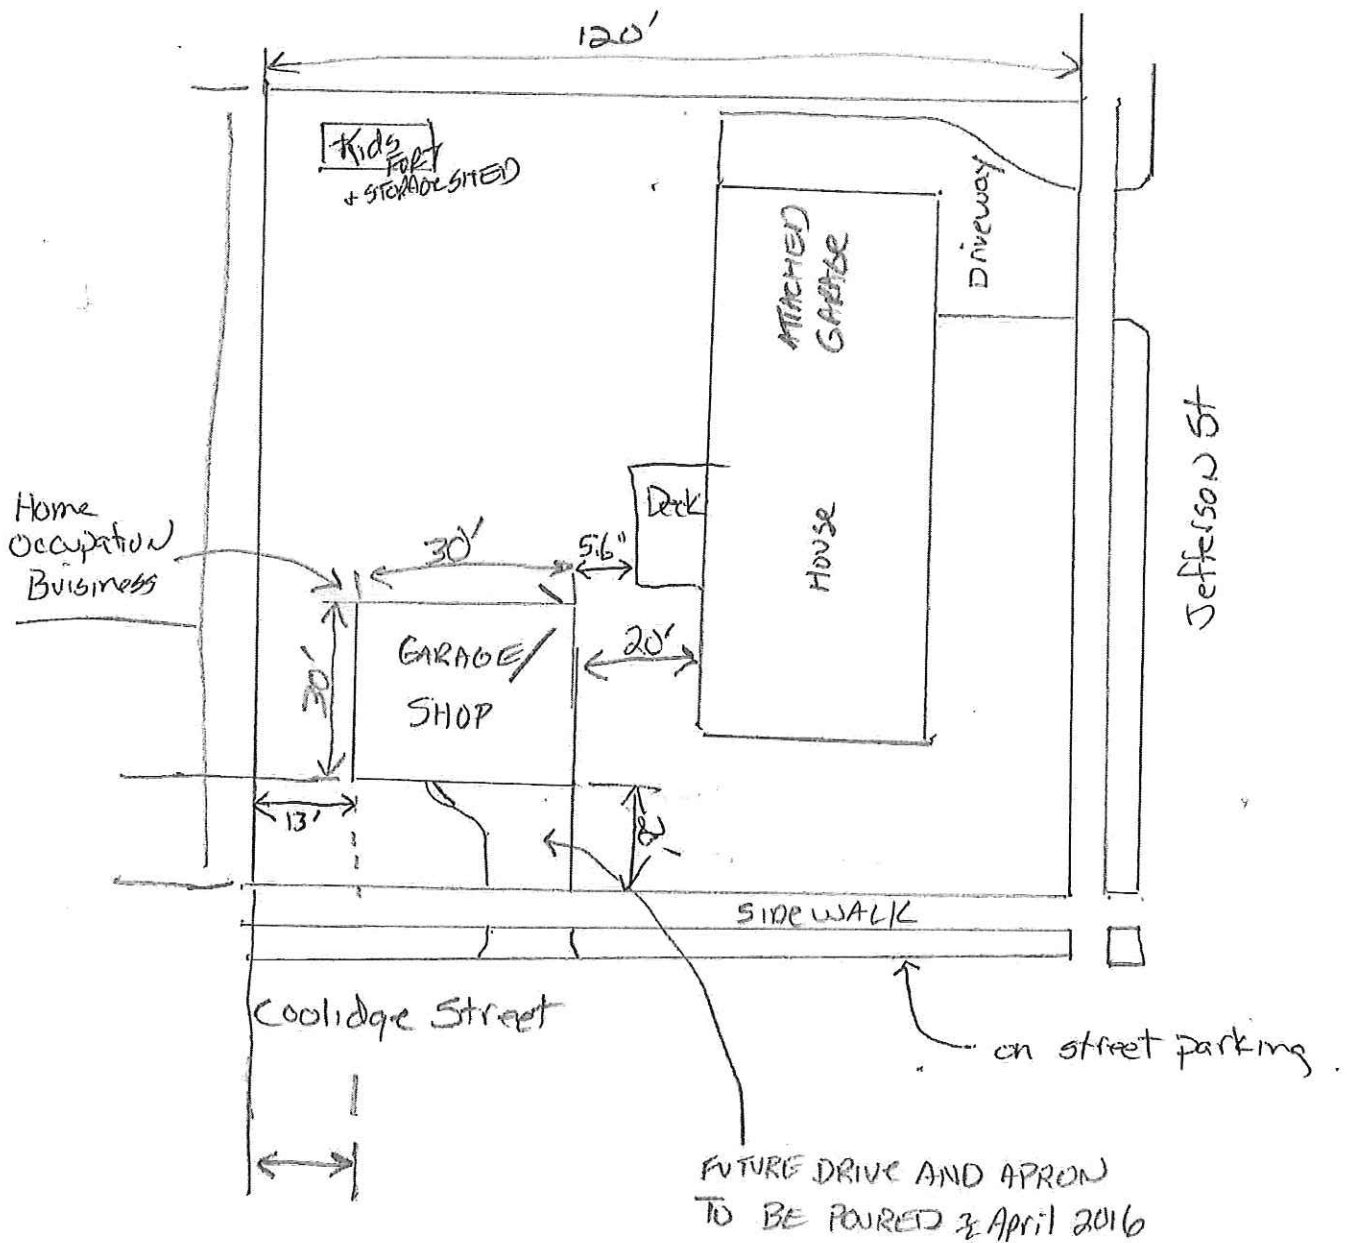 120'
Kids
FORT
+ STORAGE SHED
Driveway
ATTACHED
GARAGE
Jefferson St
Deck
House
Home
Occupation
Buisiness
30'
5'6"
30'
GARAGE/
SHOP
20'
13'
SIDEWALK
Coolidge Street
on street parking.
FUTURE DRIVE AND APRON
TO BE POURED April 2016